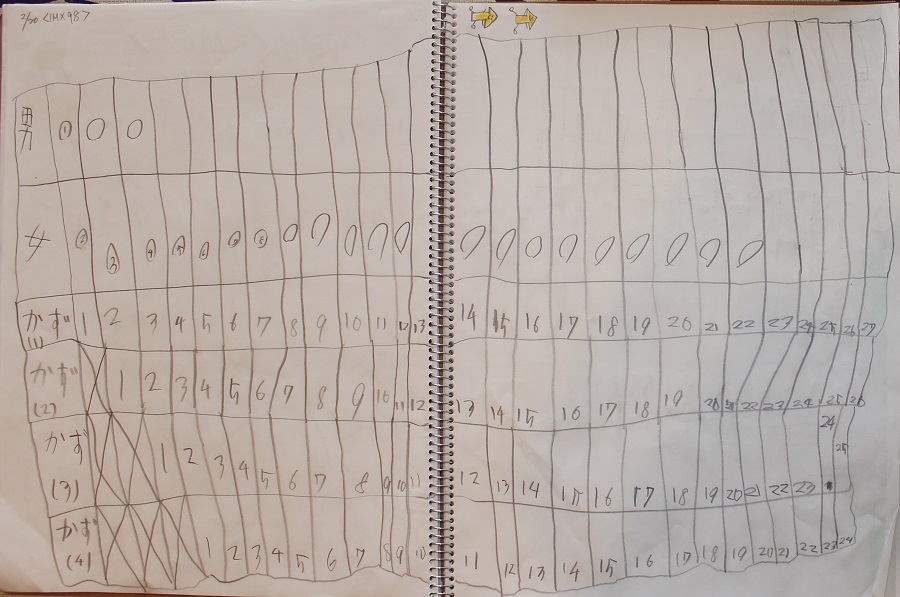 2/20
男 ① ○ ○
女 ② ③ ④ ⑤ ⑥ ⑦ ⑧ 0 0 0 0 0 0 0 0 0 0 0 0 0 0 0
かず(1) 1 2 3 4 5 6 7 8 9 10 11 12 13 14 15 16 17 18 19 20 21 22 23 24 25 26 27
かず(2) 1 2 3 4 5 6 7 8 9 10 11 12 13 14 15 16 17 18 19 20 21 22 23 24 25 26
かず(3) 1 2 3 4 5 6 7 8 9 10 11 12 13 14 15 16 17 18 19 20 21 22 23 24 25
かず(4) 1 2 3 4 5 6 7 8 9 10 11 12 13 14 15 16 17 18 19 20 21 22 23 24